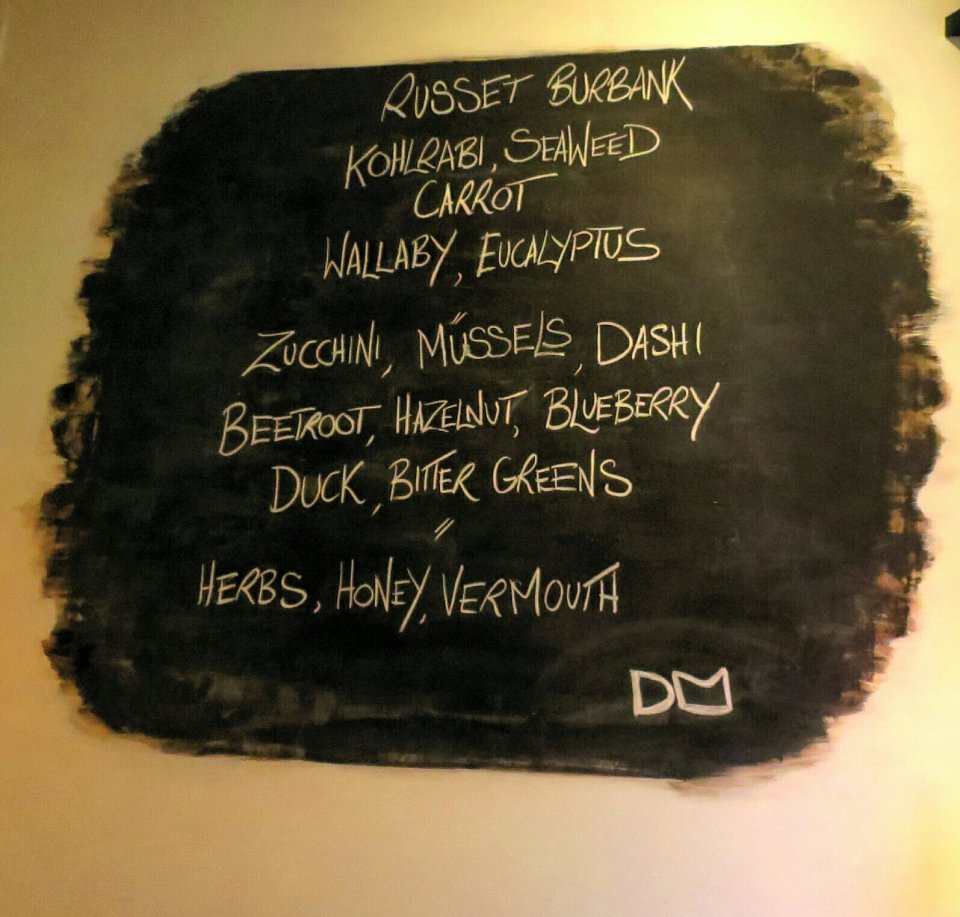 RUSSET BURBANK
KOHLRABI, SEAWEED
CARROT
WALLABY, EUCALYPTUS
〃
ZUCCHINI, MUSSELS, DASHI
BEETROOT, HAZELNUT, BLUEBERRY
DUCK, BITTER GREENS
〃
HERBS, HONEY, VERMOUTH
DM